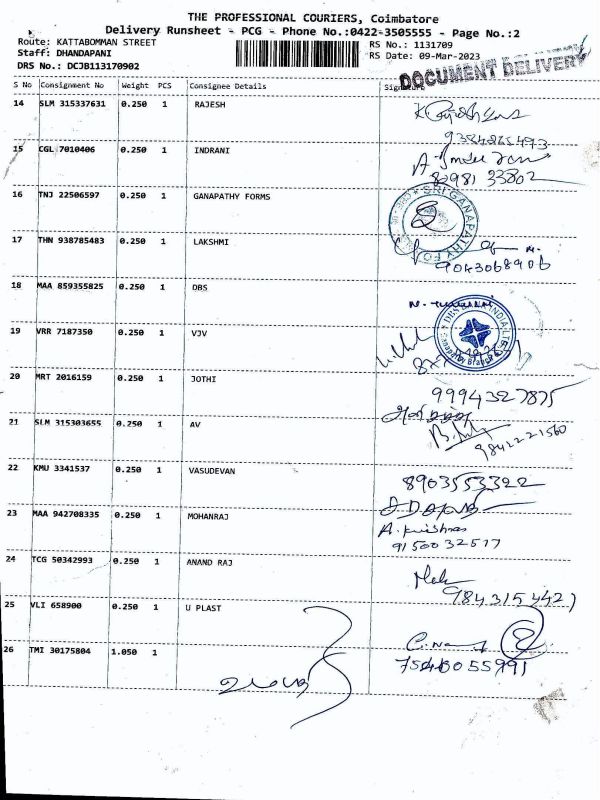 THE PROFESSIONAL COURIERS, Coimbatore
Delivery Runsheet - PCG - Phone No.:0422-3505555 - Page No.:2
Route: KATTABOMMAN STREET
Staff: DHANDAPANI
DRS No.: DCJB113170902
RS No.: 1131709
RS Date: 09-Mar-2023
DOCUMENT DELIVERY
S No Consignment No Weight PCS Consignee Details Signature
14 SLM 315337631 0.250 1 RAJESH
15 CGL 7010406 0.250 1 INDRANI
82981 33802
16 TNJ 22506597 0.250 1 GANAPATHY FORMS
SRI GANAPATHY FO
17 THN 938785483 0.250 1 LAKSHMI
9043068906
18 MAA 859355825 0.250 1 DBS
19 VRR 7187350 0.250 1 VJV
20 MRT 2016159 0.250 1 JOTHI
9994327875
21 SLM 315303655 0.250 1 AV
9842221560
22 KMU 3341537 0.250 1 VASUDEVAN
8903553322
23 MAA 942708335 0.250 1 MOHANRAJ
A. Krishna
9150032517
24 TCG 50342993 0.250 1 ANAND RAJ
25 VLI 658900 0.250 1 U PLAST
26 TMI 30175804 1.050 1